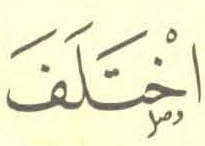 اخْتَلَفَ
وصل